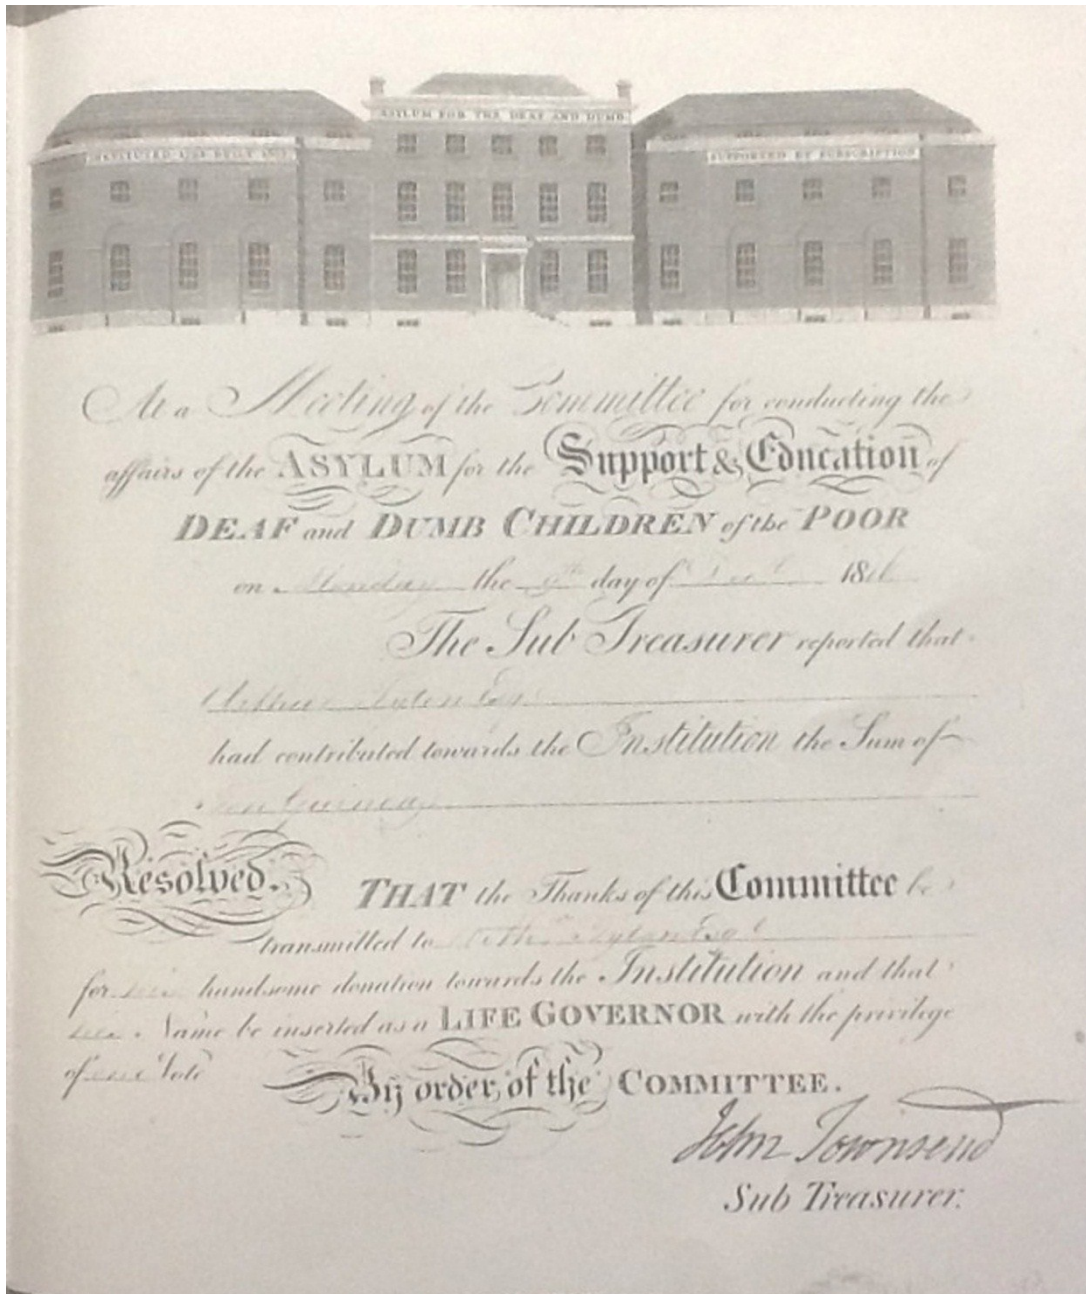 ASYLUM FOR THE DEAF AND DUMB
SUPPORTED BY SUBSCRIPTION
At a Meeting of the Committee for conducting the
affairs of the ASYLUM for the Support & Education of
DEAF and DUMB CHILDREN of the POOR
on Monday the 9th day of 181
The Sub Treasurer reported that
Esqr
had contributed towards the Institution the Sum of
Ten Guineas
Resolved. THAT the Thanks of this Committee be
transmitted to Esqr
for his handsome donation towards the Institution and that
his Name be inserted as a LIFE GOVERNOR with the privilege
of one Vote
By order, of the COMMITTEE.
John Townsend
Sub Treasurer.